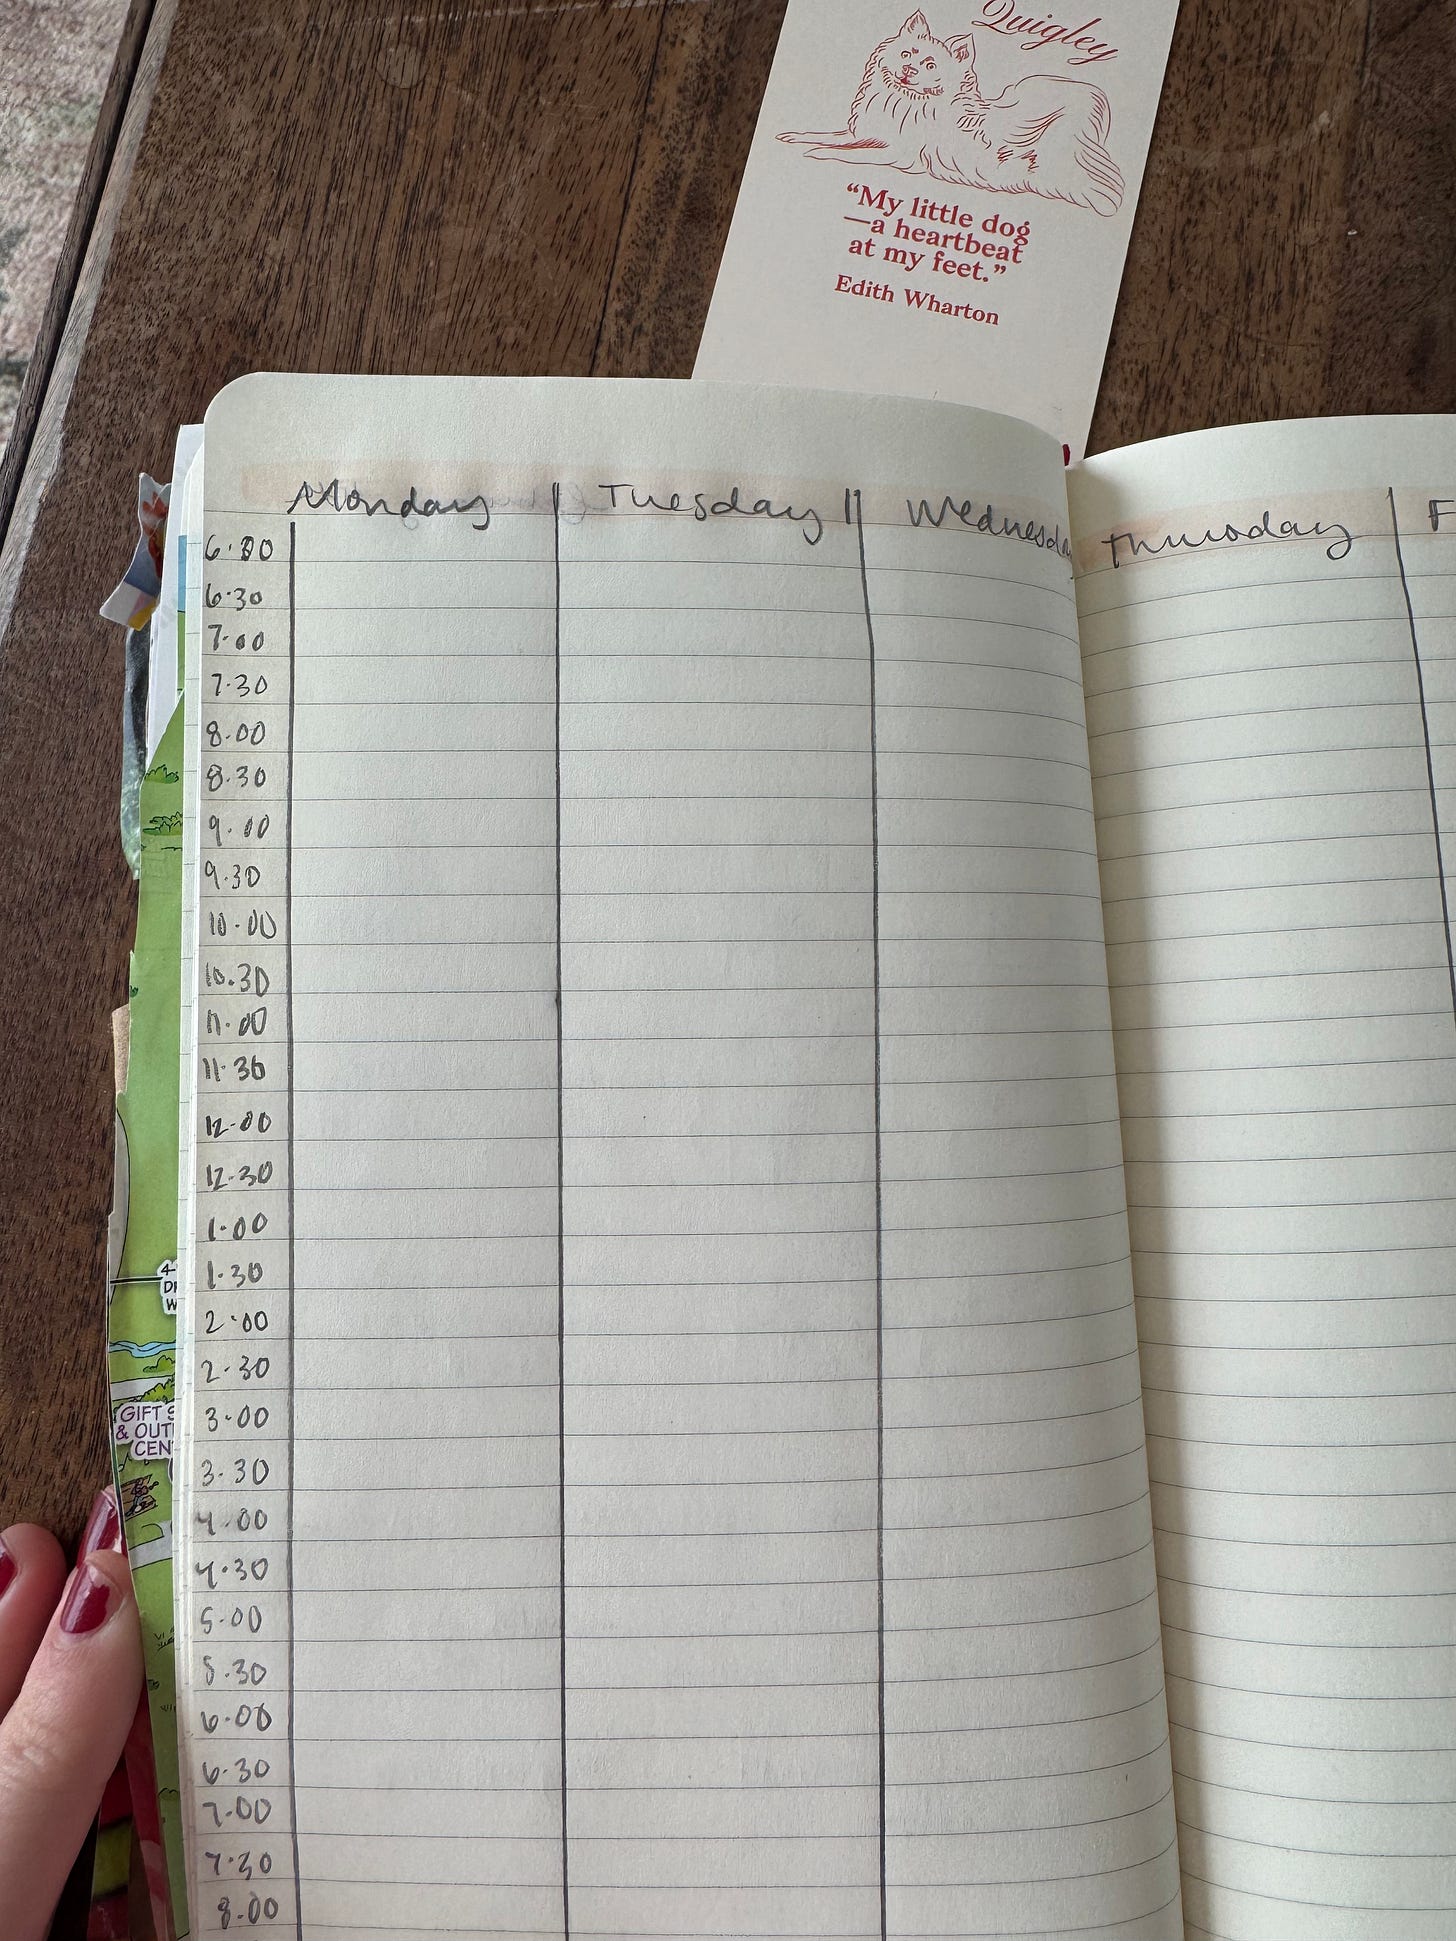 Quigley
“My little dog
—a heartbeat
at my feet.”
Edith Wharton
Monday Tuesday Wednesday Thursday F
6.00
6.30
7.00
7.30
8.00
8.30
9.00
9.30
10.00
10.30
11.00
11.30
12.00
12.30
1.00
1.30
2.00
2.30
3.00
3.30
4.00
4.30
5.00
5.30
6.00
6.30
7.00
7.30
8.00
4-
W
GIFT S
& OUT
CEN